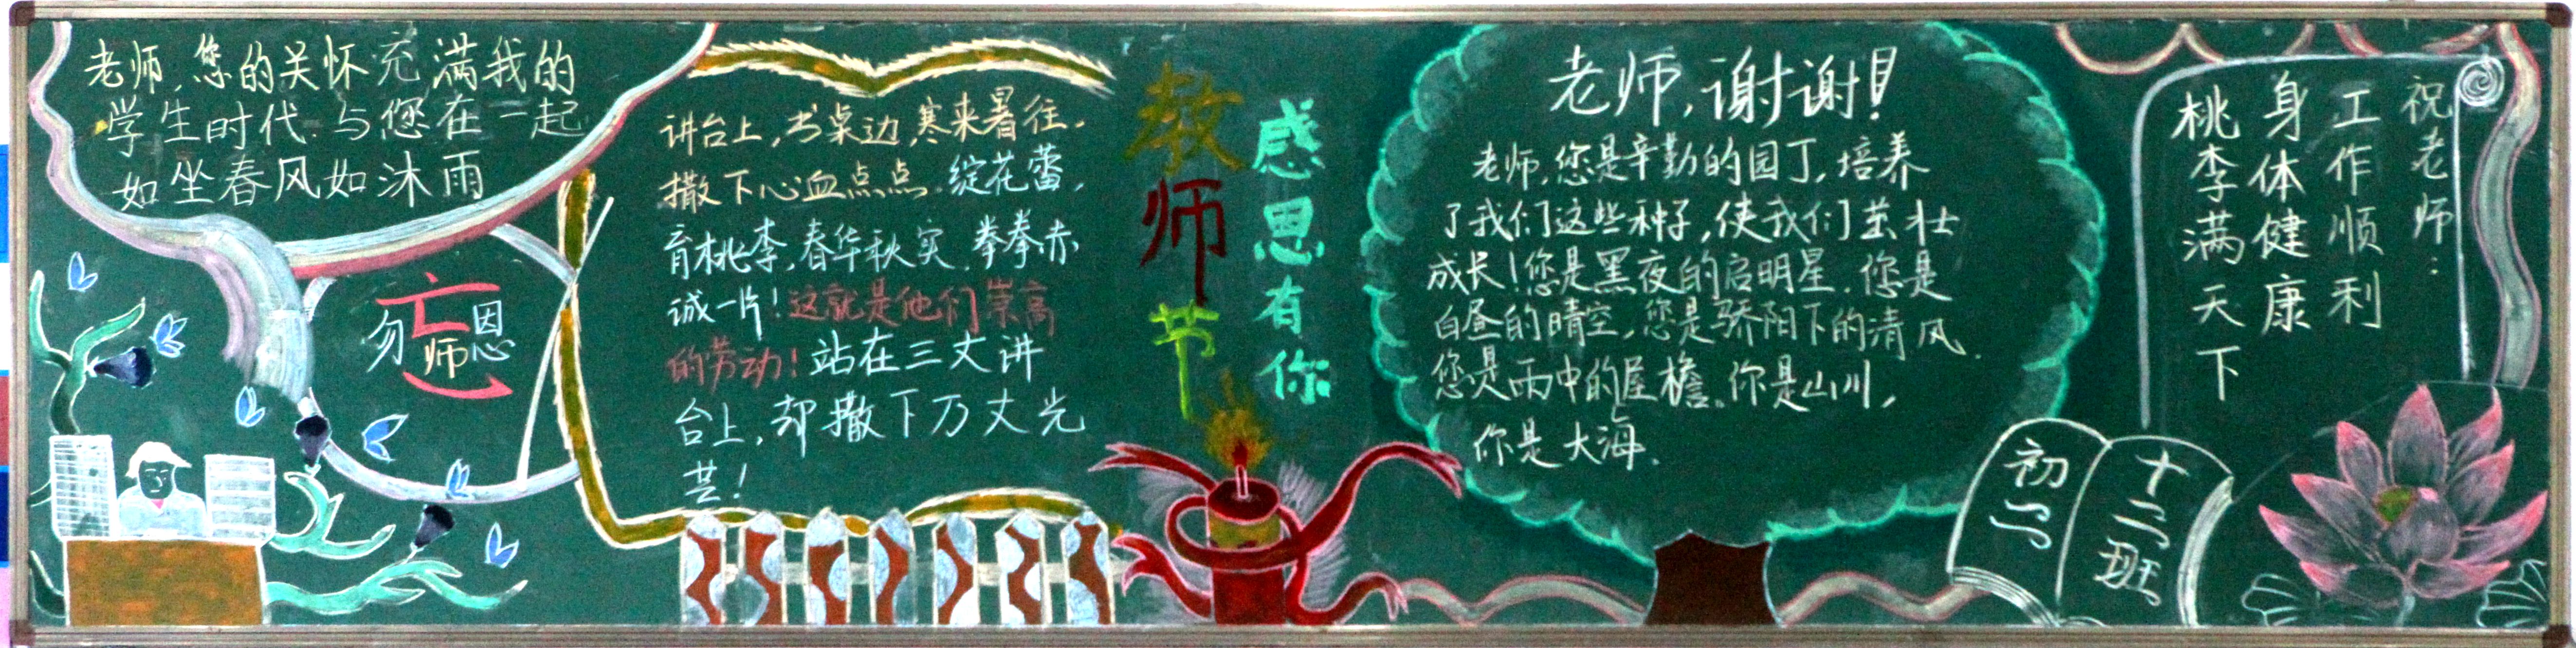 老师,您的关怀充满我的
学生时代.与您在一起
如坐春风如沐雨
勿忘师恩
讲台上,书桌边,寒来暑往,
撒下心血点点.绽花蕾,
育桃李,春华秋实.拳拳赤
诚一片!这就是他们崇高
的劳动!站在三丈讲
台上,却撒下万丈光
芒!
教师节
感恩有你
老师,谢谢!
老师,您是辛勤的园丁,培养
了我们这些种子,使我们茁壮
成长!您是黑夜的启明星.您是
白昼的晴空,您是骄阳下的清风.
您是雨中的屋檐。你是山川,
你是大海.
祝老师:
工作顺利
身体健康
桃李满天下
初一
十二班